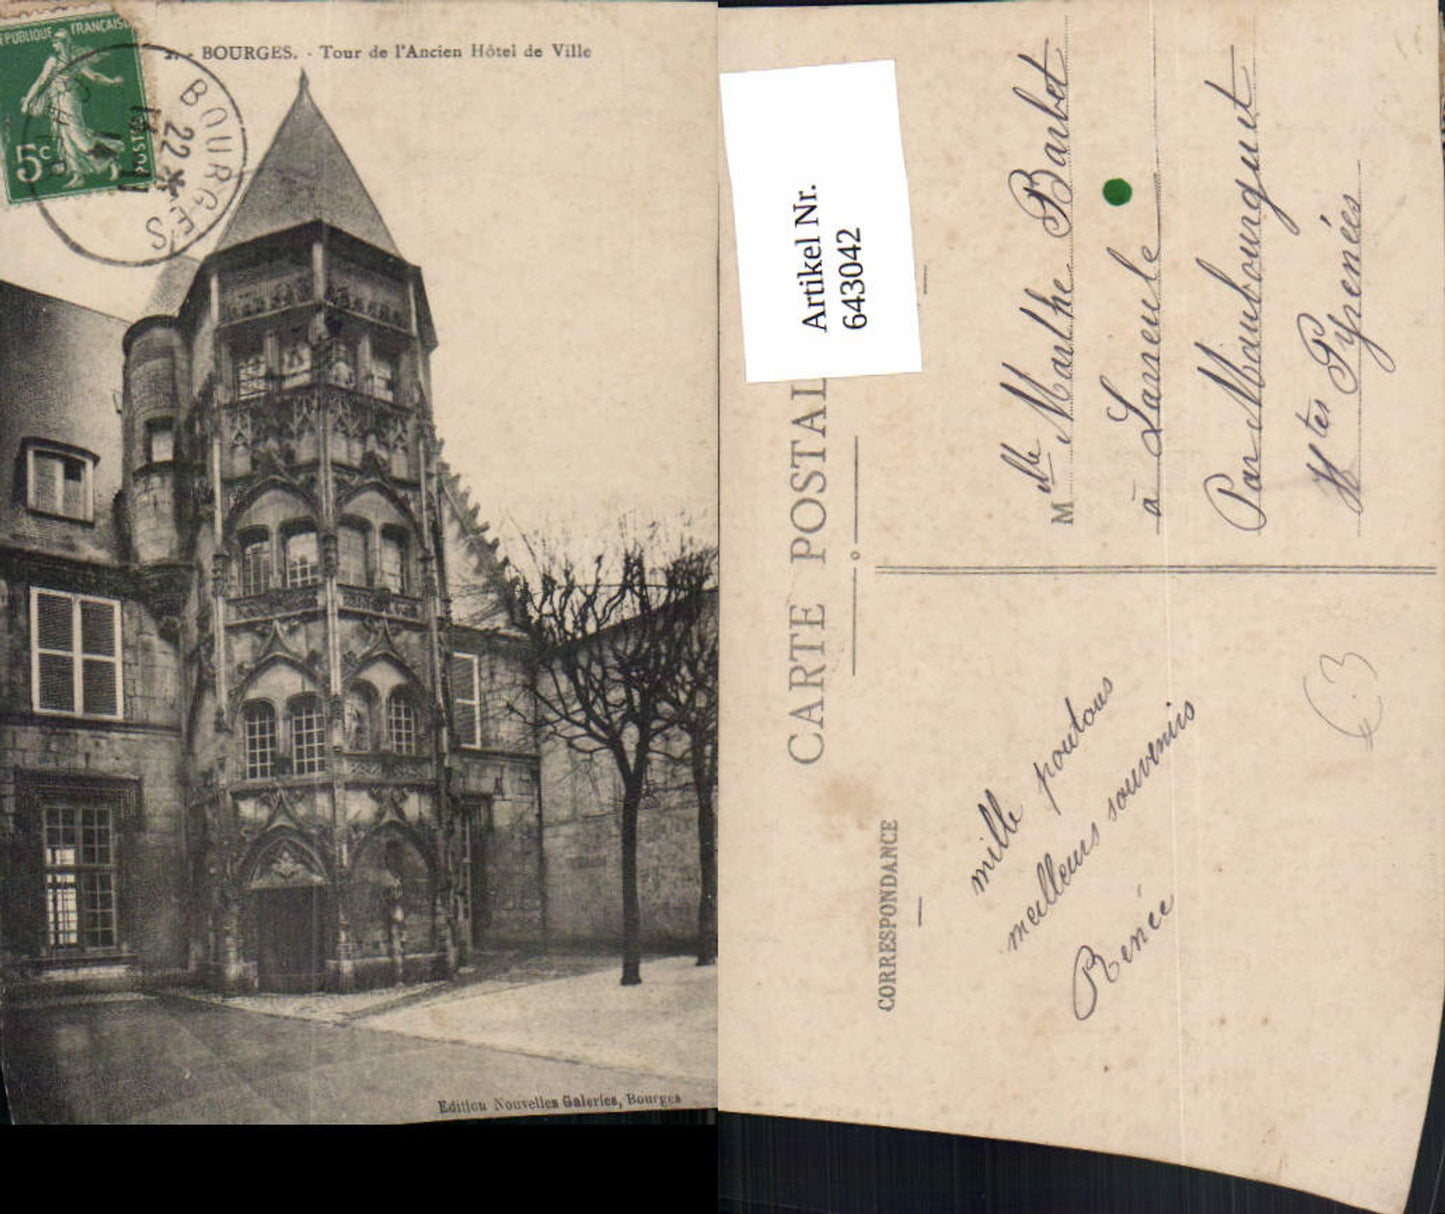 BOURGES. - Tour de l'Ancien Hôtel de Ville
REPUBLIQUE FRANÇAISE
5c
POSTES
BOURGES
22 *
CHER
Edition Nouvelles Galeries, Bourges
Artikel Nr.
643042
CARTE POSTALE
CORRESPONDANCE
Mlle Marthe Barbet
à Larreule
Par Maubourguet
Htes Pyrenées
mille poutous
meilleurs souvenirs
Renée